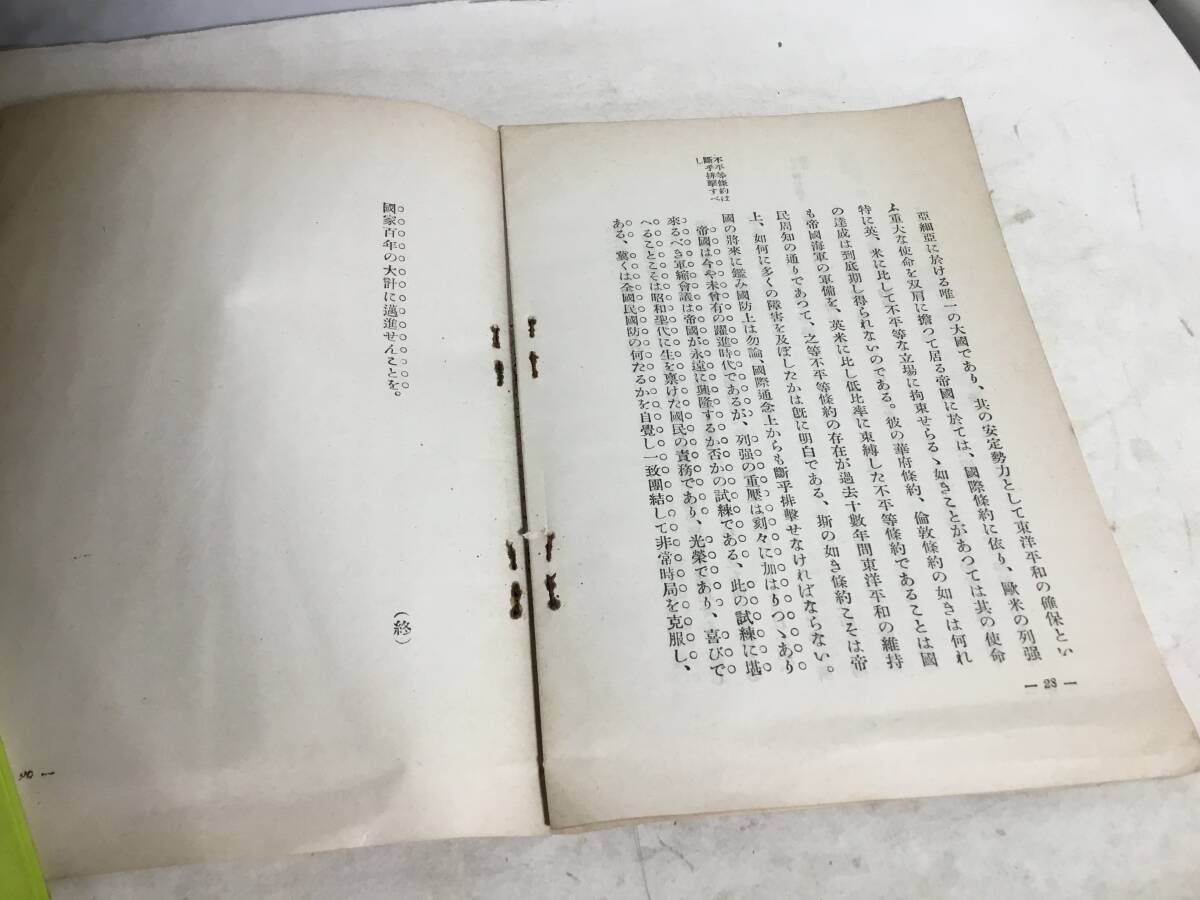 不平等條約は
斷乎排擊すべ
し
亞細亞に於ける唯一の大國であり、其の安定勢力として東洋平和の確保とい
ふ重大な使命を双肩に擔つて居る帝國に於ては、國際條約に依り、歐米の列强
特に英、米に比して不平等な立場に拘束せらるゝ如きことがあつては其の使命
の達成は到底期し得られないのである。彼の華府條約、倫敦條約の如きは何れ
も帝國海軍の軍備を、英米に比し低比率に束縛した不平等條約であることは國
民周知の通りであつて、之等不平等條約の存在が過去十數年間東洋平和の維持
上、如何に多くの障害を及ぼしたかは既に明白である、斯の如き條約こそは帝
國の將來に鑑み國防上は勿論、國際通念上からも斷乎排擊せなければならない。
帝國は今や未曾有の躍進時代であるが、列强の重壓は刻々に加はりつゝあり
來るべき軍縮會議は帝國が永遠に興隆するか否かの試練である、此の試練に堪
へることこそは昭和聖代に生を禀けた國民の責務であり、光榮であり、喜びで
ある、冀くは全國民國防の何たるかを自覺し一致團結して非常時局を克服し、
— 28 —
國家百年の大計に邁進せんことを。
(終)